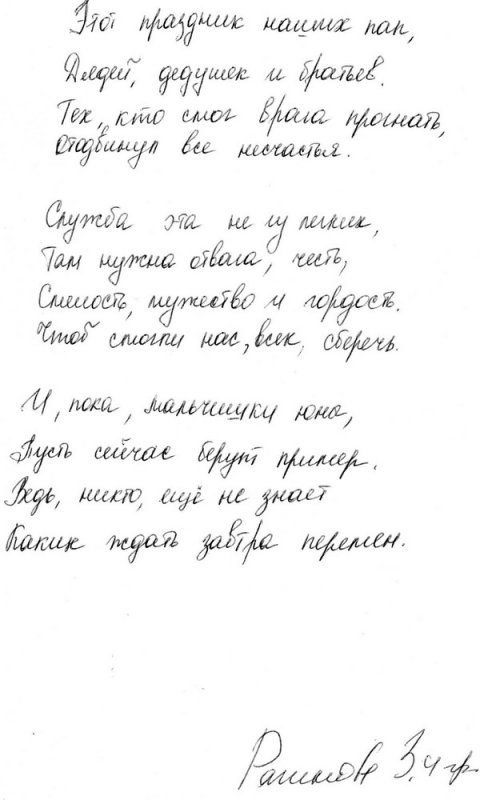 Этот праздник наших пап,
Дядей, дедушек и братьев.
Тех, кто смог врага прогнать,
Отодвинул все несчастья.
Служба эта не из легких,
Там нужна отвага, честь,
Смелость, мужество и гордость.
Чтоб смогли нас, всех, сберечь.
И, пока, мальчишки юны,
Пусть сейчас берут пример.
Ведь, никто, ещё не знает
Каких ждать завтра перемен.
З. 4 гр.